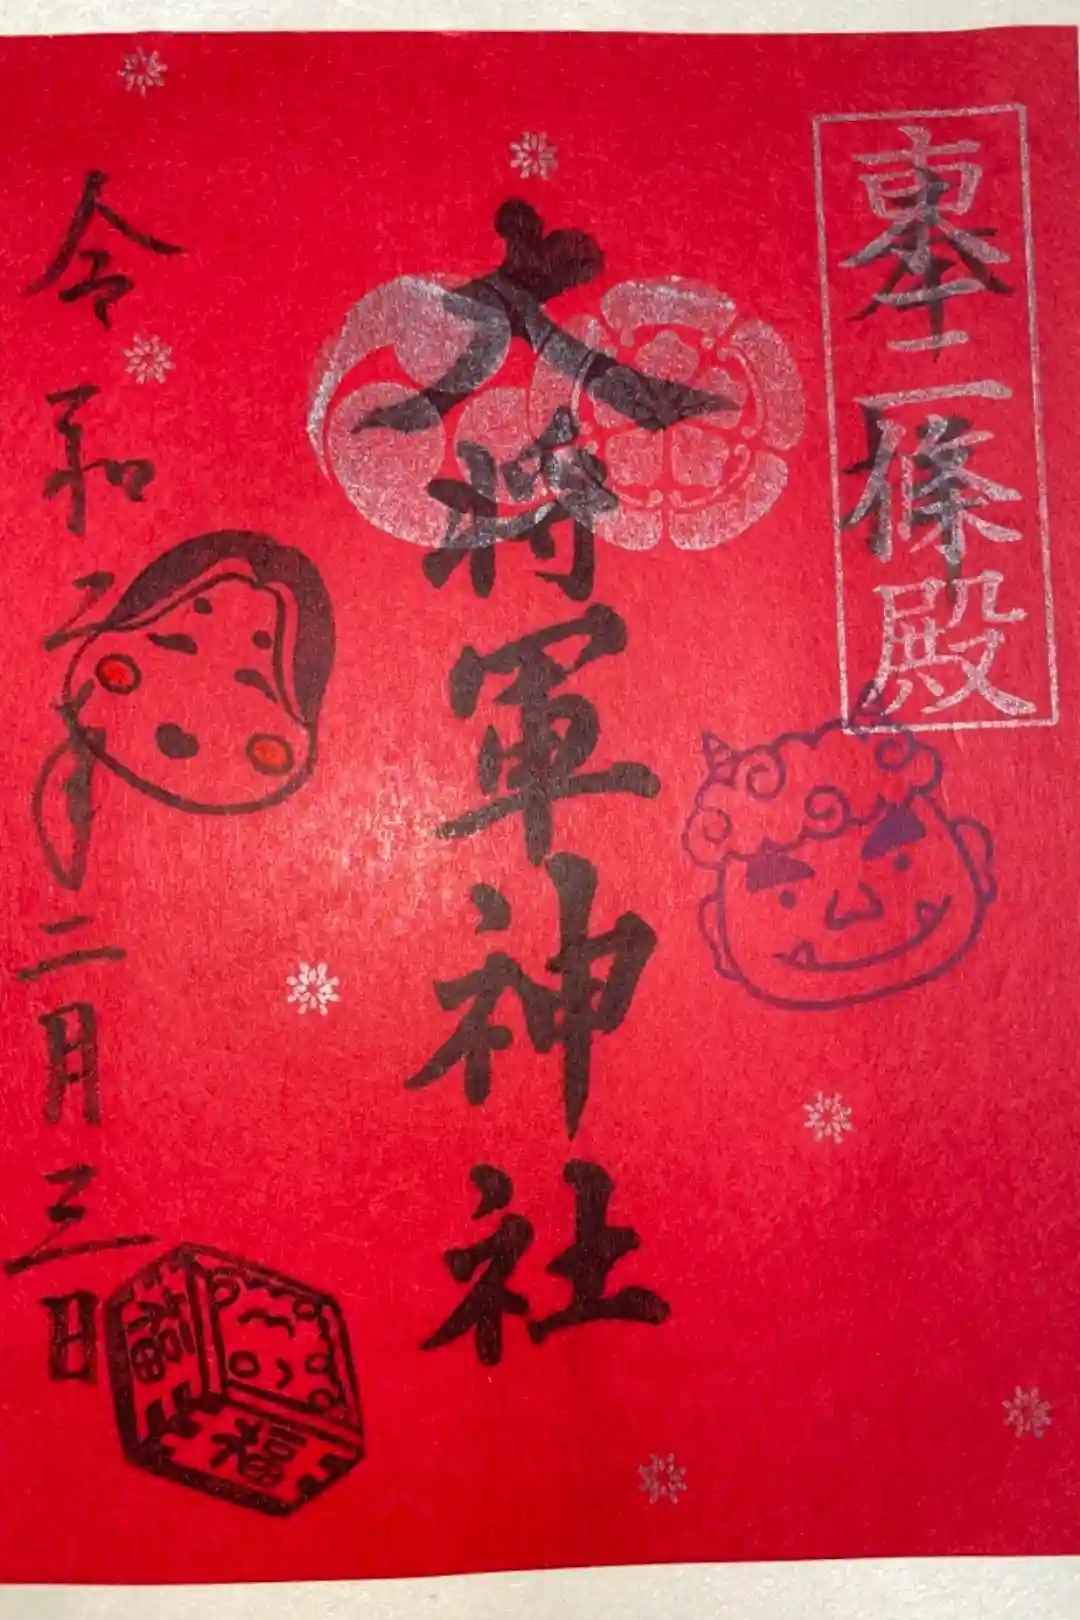 東三條殿
奉拝
大将軍神社
令和二年二月三日
福
福